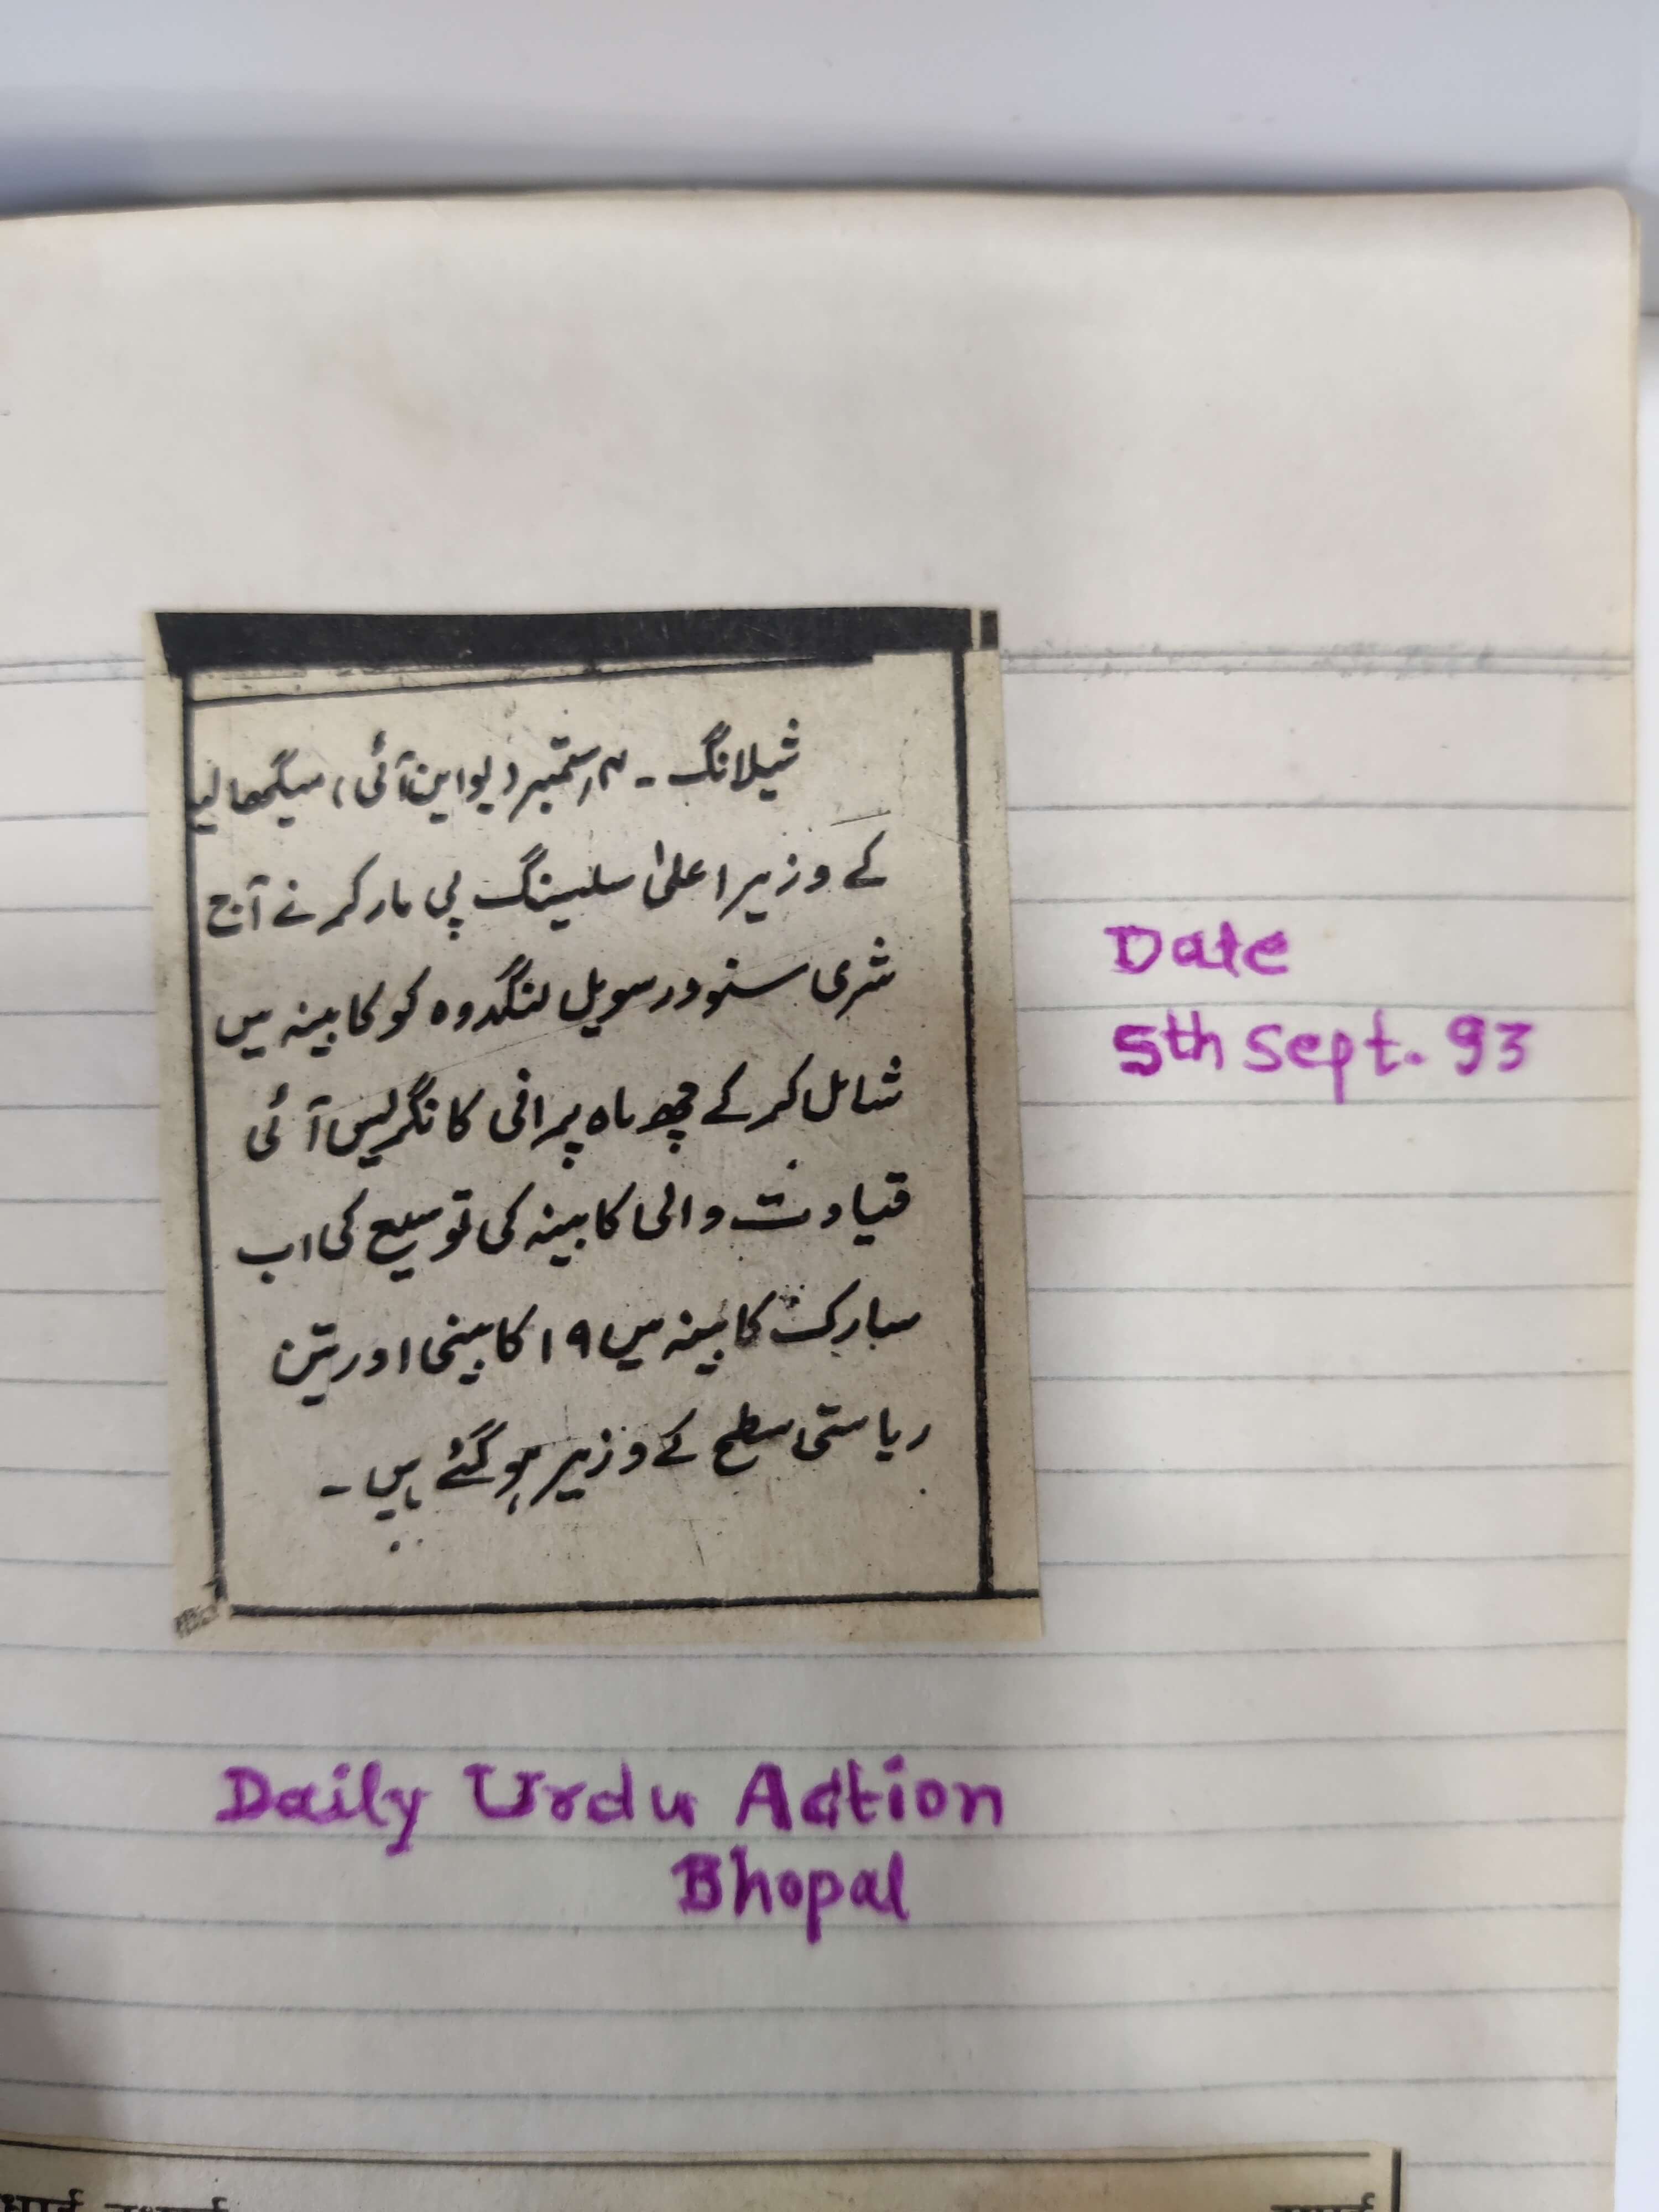 شیلانگ ۔ ۴ ستمبر (یو این آئی) میگھالیہ
کے وزیر اعلیٰ سلسینگ پی مارکر نے آج
شری سنوورسویل لنگدوہ کو کابینہ میں
شامل کر کے چھ ماہ پرانی کانگریس آئی
قیادت والی کابینہ کی توسیع کی اب
مبارک کابینہ میں ۱۹ کابینی اور تین
ریاستی سطح کے وزیر ہو گئے ہیں ۔
Date
5th Sept. 93
Daily Urdu Action
Bhopal